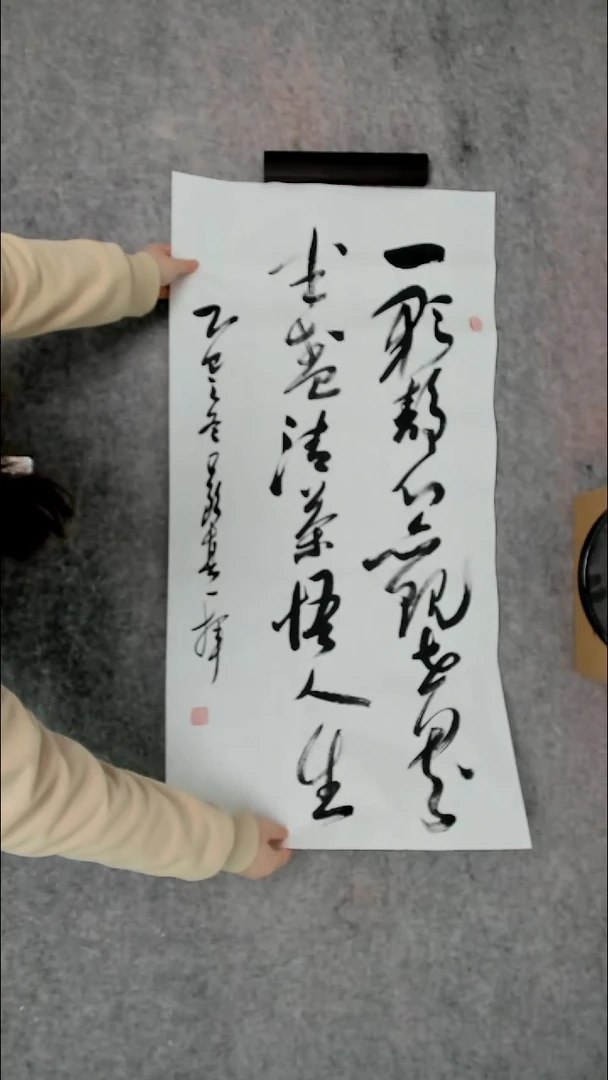 一颗静心观世界
半盏清茶悟人生
乙巳之冬 一挥